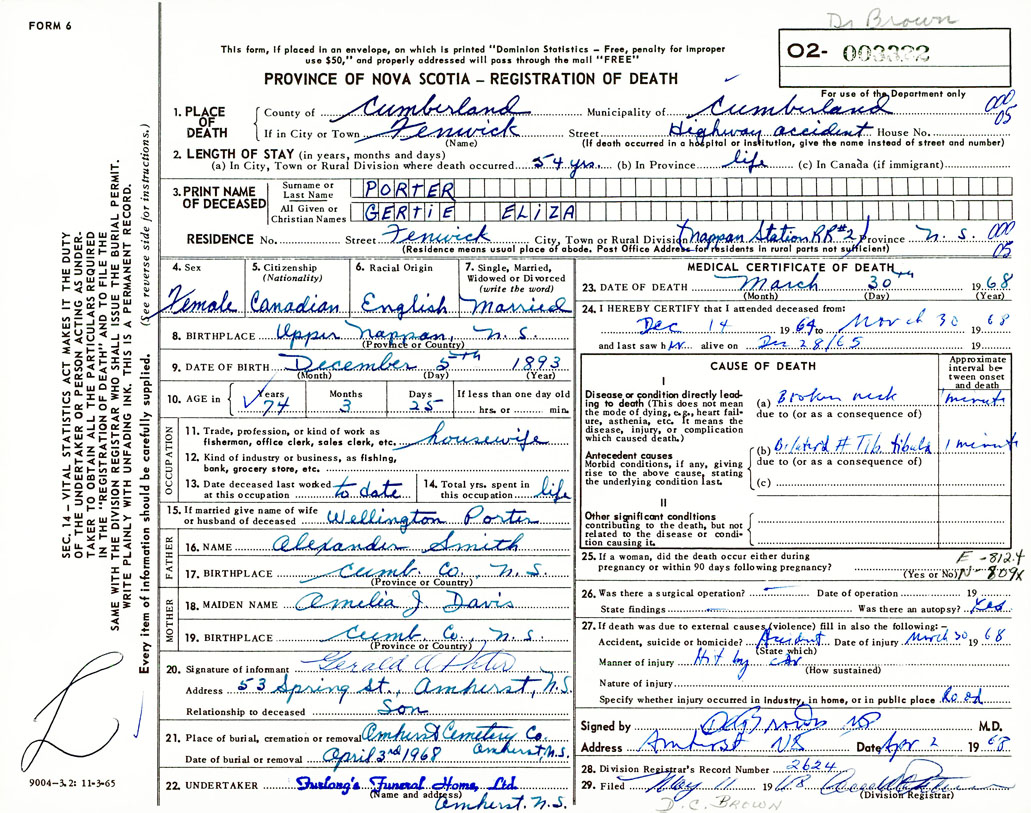 FORM 6
Dr Brown
This form, if placed in an envelope, on which is printed "Dominion Statistics – Free, penalty for improper
use $50," and properly addressed will pass through the mail "FREE"
O2- 003322
PROVINCE OF NOVA SCOTIA – REGISTRATION OF DEATH
For use of the Department only
000
05
1. PLACE OF DEATH
County of Cumberland Municipality of Cumberland
If in City or Town Fenwick Street Highway accident House No.
(Name) (If death occurred in a hospital or institution, give the name instead of street and number)
2. LENGTH OF STAY (in years, months and days)
(a) In City, Town or Rural Division where death occurred 54 yrs. (b) In Province life (c) In Canada (if immigrant)
3. PRINT NAME OF DECEASED
Surname or Last Name PORTER
All Given or Christian Names GERTIE ELIZA
RESIDENCE No. Street Fenwick City, Town or Rural Division Nappan Station RR#2 Province N. S.
000
05
(Residence means usual place of abode. Post Office Address for residents in rural parts not sufficient)
4. Sex
Female
5. Citizenship
(Nationality)
Canadian
6. Racial Origin
English
7. Single, Married,
Widowed or Divorced
(write the word)
Married
8. BIRTHPLACE Upper Nappan, N. S.
(Province or Country)
9. DATE OF BIRTH December 5th 1893
(Month) (Day) (Year)
10. AGE in
Years
74
Months
3
Days
25
If less than one day old
hrs. or min.
OCCUPATION
11. Trade, profession or kind of work as
fisherman, office clerk, sales clerk, etc. housewife
12. Kind of industry or business, as fishing,
bank, grocery store, etc.
13. Date deceased last worked
at this occupation to date
14. Total yrs. spent in
this occupation life
15. If married give name of wife
or husband of deceased Wellington Porter
FATHER
16. NAME Alexander Smith
17. BIRTHPLACE Cumb. Co., N. S.
(Province or Country)
MOTHER
18. MAIDEN NAME Amelia J. Davis
19. BIRTHPLACE Cumb. Co., N. S.
(Province or Country)
20. Signature of informant Gerald A Porter
Address 53 Spring St., Amherst, N.S.
Relationship to deceased Son
21. Place of burial, cremation or removal Amherst Cemetery Co.
Amherst, N.S.
Date of burial or removal April 3rd 1968
22. UNDERTAKER Furlong's Funeral Home, Ltd.
(Name and address)
Amherst, N.S.
MEDICAL CERTIFICATE OF DEATH
23. DATE OF DEATH March 30th 1968
(Month) (Day) (Year)
24. I HEREBY CERTIFY that I attended deceased from:
Dec 14 1964 to March 30 1968
and last saw her alive on Dec 28/65 19
CAUSE OF DEATH
Approximate
interval be-
tween onset
and death
I
Disease or condition directly lead-
ing to death (This does not mean
the mode of dying, e.g., heart fail-
ure, asthenia, etc. It means the
disease, injury, or complication
which caused death.)
(a) Broken neck minute
due to (or as a consequence of)
Antecedent causes
Morbid conditions, if any, giving
rise to the above cause, stating
the underlying condition last.
(b) Bilateral # Tib. fibula 1 minute
due to (or as a consequence of)
(c)
II
Other significant conditions
contributing to the death, but not
related to the disease or condi-
tion causing it.
25. If a woman, did the death occur either during
pregnancy or within 90 days following pregnancy?
(Yes or No)
E-812.4
N-809x
26. Was there a surgical operation? Date of operation 19
State findings Was there an autopsy? Yes
27. If death was due to external causes (violence) fill in also the following:–
Accident, suicide or homicide? Accident Date of injury March 30 1968
(State which)
Manner of injury Hit by car
(How sustained)
Nature of injury
Specify whether injury occurred in industry, in home, or in public place Road
Signed by M.D.
Address Amherst NS Date Apr 2 1968
28. Division Registrar's Record Number 2624
29. Filed May 11 1968
(Division Registrar)
D. C. BROWN
SEC. 14 – VITAL STATISTICS ACT MAKES IT THE DUTY
OF THE UNDERTAKER OR PERSON ACTING AS UNDER-
TAKER TO OBTAIN ALL THE PARTICULARS REQUIRED
IN THE "REGISTRATION OF DEATH" AND TO FILE THE
SAME WITH THE DIVISION REGISTRAR WHO SHALL ISSUE THE BURIAL PERMIT.
WRITE PLAINLY WITH UNFADING INK. THIS IS A PERMANENT RECORD.
Every item of information should be carefully supplied. (See reverse side for instructions.)
9004–3.2: 11-3-65